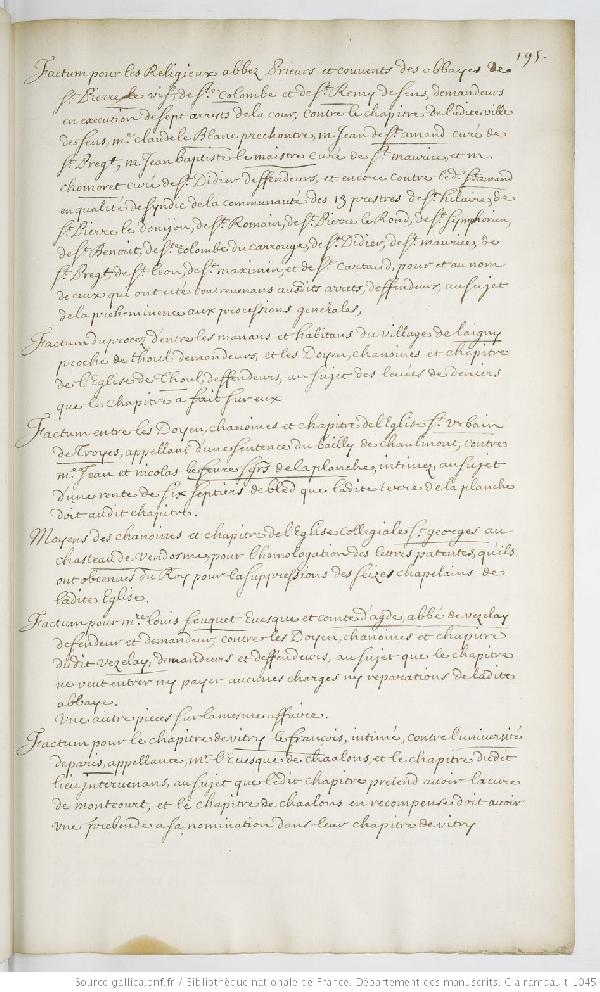 195.
Factum pour les Religieux abbez Prieurs et couvents des abbayes de
St. Pierre le vif, de Ste. Colombe et de St. Remy de sens, demandeurs
en execution de sept arrests de la cour, contre le chapitre de ladite ville
de sens, me. claude le Blanc prechantre, m. Jean de St. amand curé de
St. Bregt, m. Jean baptiste le maistre curé de St. maurice, et m.
chomoret curé de St. Didier deffendeurs, et encore contre ledt. St. amand
en qualité de syndic de la communauté des 13 prestres de St. hilaire, de
St. Pierre le donjon, de St. Romain, de St. Pierre le Rond, de St. symphorien,
de St. Benoit, de Ste. colombe du carrouge, de St. Didier, de St. maurice, de
St. Bregt, de St. Leon, de St. maximin, et de St. Cartaud, pour et au nom
de ceux qui ont esté contrevenans ausdits arrets, deffendeurs, au sujet
de la preheminence aux processions generales,
Factum du procez d'entre les manans et habitans du village de Laigny
proche de Thoul demandeurs, et les Doyen, chanoines et chapitre
de l'Eglise de Thoul, deffendeurs, au sujet des levées de deniers
que le chapitre a fait sur eux
Factum entre les Doyen, chanoines et chapitre de l'Eglise St. Urbain
de Troyes, appellant d'une sentence du bailly de chaulmont, contre
me. Jean et nicolas le fevre sgrs de la planche, intimez, au sujet
d'une rente de six septiers de bled que ladite terre de la planche
doit audit chapitre.
Moyens des chanoines et chapitre de l'Eglise Collegiale St. georges au
chasteau de Vendosme, pour l'homologation des lettres patentes, qu'ils
ont obtenues du Roy pour la suppressions des seizes chapelains de
ladite Eglise.
Factum pour mre Louis fouquet Evesque et comte d'agde, abbé de vezelay
defendeur et demandeur, contre les Doyen, chanoines et chapitre
dudit vezelay, demandeurs et deffendeurs, au sujet que le chapitre
ne veut entrer ny payer aucunes charges ny reparations de ladite
abbaye.
Une autre pieces sur la mesme affaire.
Factum pour le chapitre de vitry le françois, intimé, contre l'université
de paris, appellante, mr. l'Evesque de chaalons et le chapitre dudit
lieu Intervenans, au sujet que ledit chapitre pretend avoir la cure
de montcourt, et le chapitre de chaalons en recompense doit avoir
une prebende a sa nomination dans leur chapitre de vitry
Source gallica.bnf.fr / Bibliothèque nationale de France. Département des manuscrits. Clairambault 1045